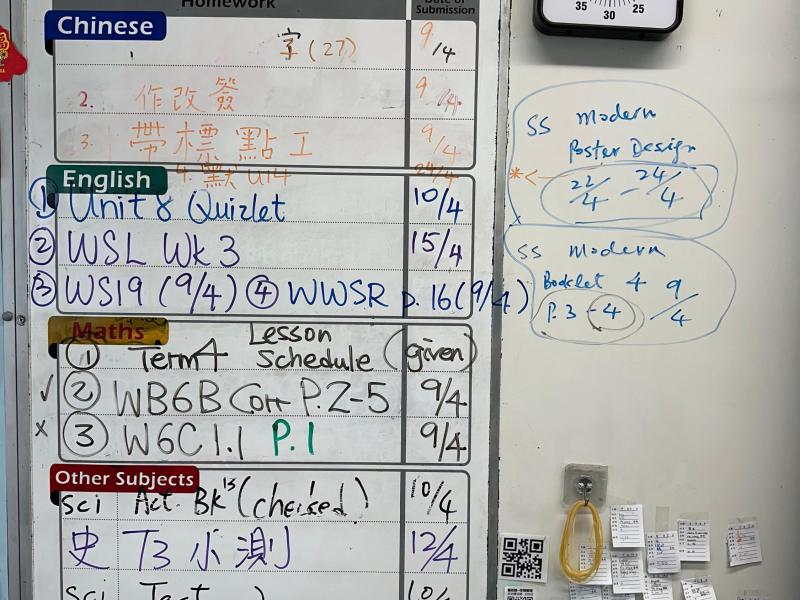 Homework
Date of Submission
35 30 25
Chinese
字(27) 9/4
2. 作改簽 9/4
3. 帶標點工 9/4
4. 默U14 24/4
English
① Unit 8 Quizlet 10/4
② WSL Wk 3 15/4
③ WS19 (9/4) ④ WWSR p.16 (9/4)
Maths
① Term 4 Lesson Schedule (given)
✓ ② WB6B Corr P.2-5 9/4
x ③ W6C 1.1 P.1 9/4
Other Subjects
Sci Act. Bk 10/4
史 T3 小測 12/4
Sci Test
SS modern
Poster Design
*< 22/4 - 24/4
SS modern
Booklet 4 9/4
P.3 - 4